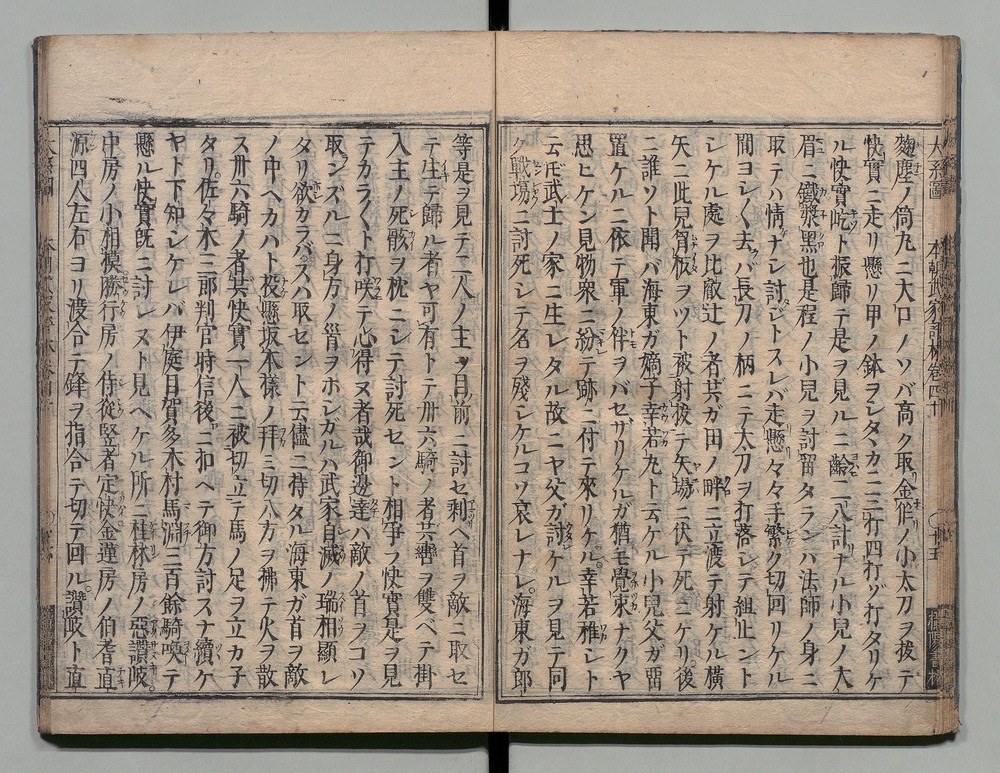 麴塵ノ筒丸ニ大口ノソバ高ク取金作ノ小太刀ヲ拔テ
快實ニ走リ懸リ甲ノ鉢ヲシタヽカニ三打四打ゾ打タリケ
ル快實屹ト振歸テ是ヲ見ルニ齡二八計ナル小兒ノ大
眉ニ鐵漿黑也是程ノ小兒ヲ討留タランハ法師ノ身ニ
取テハ情ナシ討ジトスレバ走懸々々手繁ク切回リケル
間ヨシ〳〵去バ長刀ノ柄ニテ太刀ヲ打落シテ組止ント
シケル處ヲ比叡辻ノ者共ガ田ノ畔ニ立渡テ射ケル横
矢ニ此兒胷板ヲツト被射拔テ矢場ニ伏テ死ニケリ後
ニ誰ソト聞バ海東ガ嫡子幸若丸ト云ケル小兒父ガ留
置ケルニ依テ軍ノ伴ヲバセザリケルガ猶モ覺束ナクヤ
思ヒケン見物衆ニ紛テ跡ニ付テ來リケル幸若稚シト
云𪜈武士ノ家ニ生レタル故ニヤ父ガ討ケルヲ見テ同
ク戰場ニ討死シテ名ヲ殘シケルコソ哀レナレ海東ガ郎
等是ヲ見テ二人ノ主ヲ目前ニ討セ剩ヘ首ヲ敵ニ取セ
テ生テ歸ル者ヤ可有トテ卅六騎ノ者共轡ヲ雙ベテ掛
入主ノ死骸ヲ枕ニシテ討死セント相爭フ快實是ヲ見
テカラ〳〵ト打咲テ心得ヌ者哉御邊達ハ敵ノ首ヲコソ
取ンズルニ身方ノ首ヲホシガルハ武家自滅ノ瑞相顯レ
タリ欲カラバスハ取セント云儘ニ持タル海東ガ首ヲ敵
ノ中ヘカハト投懸坂本樣ノ拜ミ切八方ヲ拂テ火ヲ散
ス卅六騎ノ者共快實一人ニ被切立テ馬ノ足ヲ立カ子
タリ佐々木三郎判官時信後ニ扣ヘテ御方討スナ續ケ
ヤト下知シケレバ伊庭目賀多木村馬淵三百餘騎喚テ
懸ル快實既ニ討レヌト見ヘケル所ニ桂林房ノ惡讃岐
中房ノ小相模勝行房ノ侍從竪者定快金蓮房ノ伯耆直
源四人左右ヨリ渡合テ鋒ヲ指合テ切テ回ル讃岐ト直